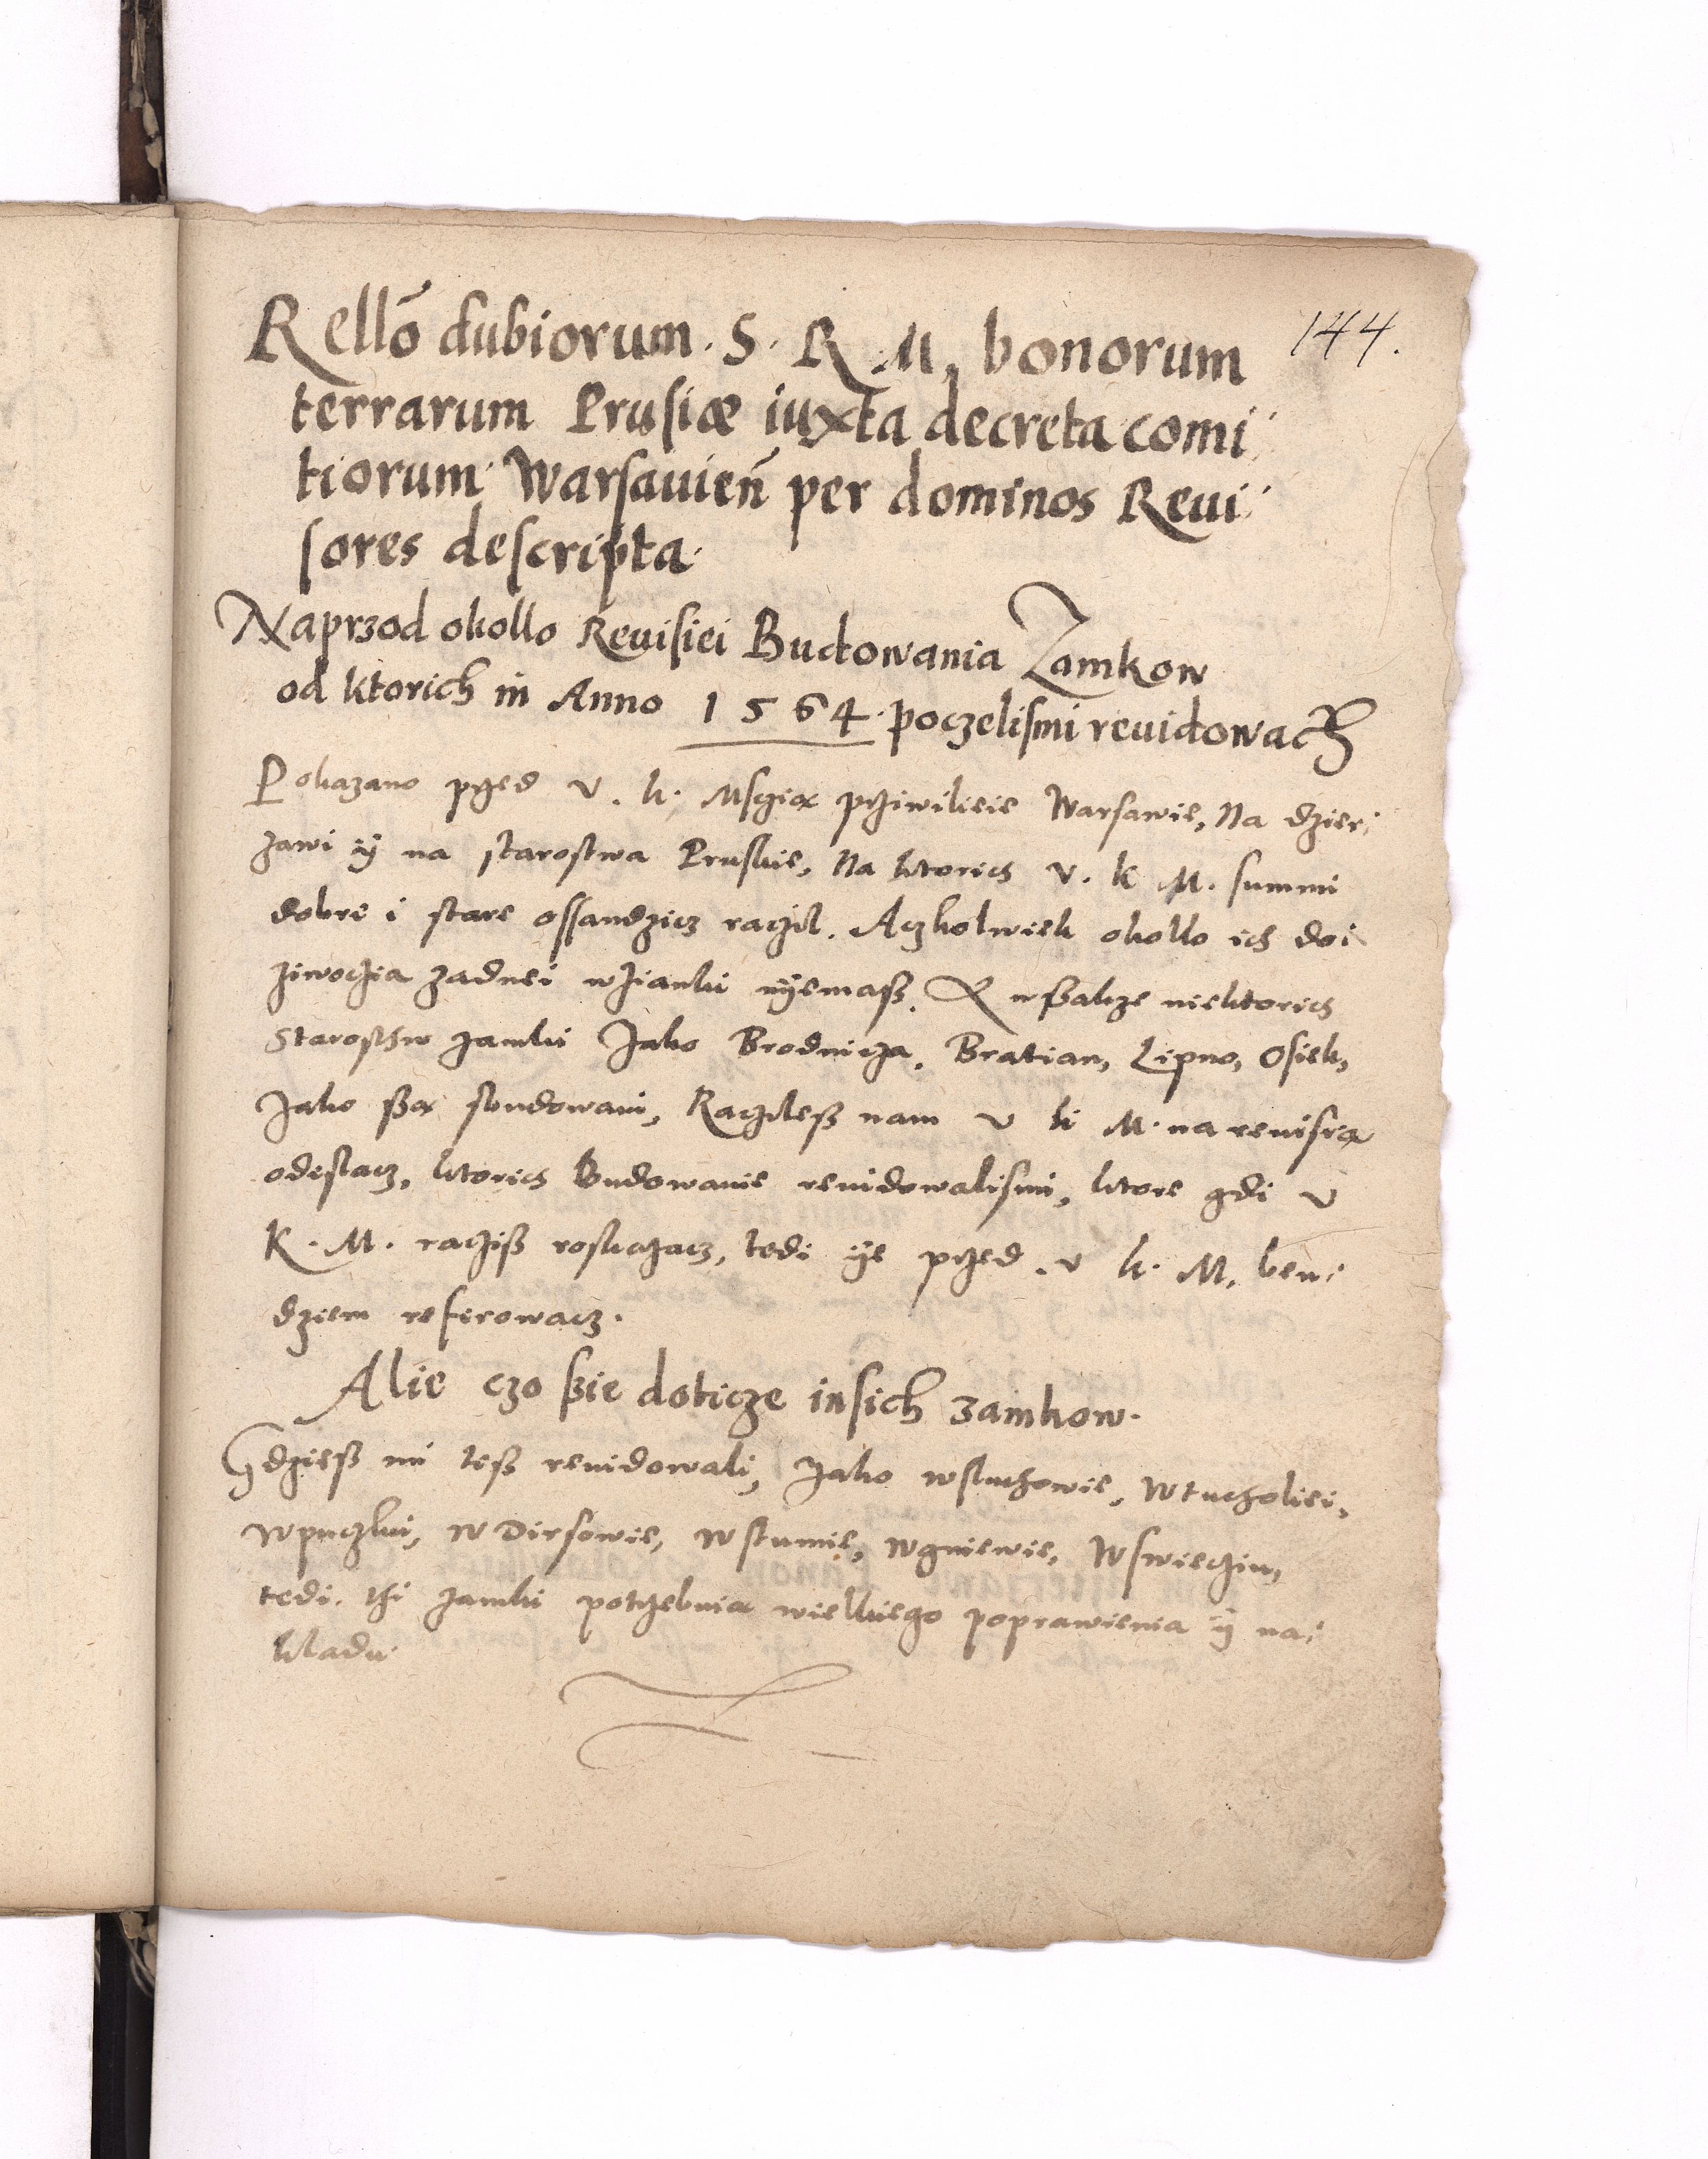 144.
Rellõ dubiorum. S. R. M. bonorum
terrarum Prusiæ iuxta decreta comi
tiorum Warsauieñ per dominos Reui
sores descripta.
Naprzod okollo Reuisiei Budowania Zamkow
od ktorich in Anno 1564. poczelismi reuidowach
Pokazano przed v. k. Msczia prziwileie Warsawie, Na dzier
zawi ÿ na starostwa Pruskie, Na ktorich v. k M. summi
dobre i stare ossandzicz raczil. Aczkolwiek okollo ich doi
ziwoczia zadnei wzianki nÿemaß. A wßakze niektorich
Starosthw zamki Jako Brodnicza, Bratian, Lipno, Osiek,
Jako ßa fundowani, Raczileß nam v k M. na reuisia
odeslacz, ktorich Budowanie reuidowalismi, ktore gdi v
K. M. racziß roskazacz, tedi ÿe przed. v k. M. ben
dziem referowacz.
Alie czo ßie doticze insich zamkow.
Gdzieß mi teß reuidowali, Jako wsluchowie, Wtucholiei,
Wpuczku, W Dirsowie, W stumie, Wgniewie, Wswieczin,
tedi. thi zamki potrzebuia wielkiego poprawienia ÿ na
kladu.